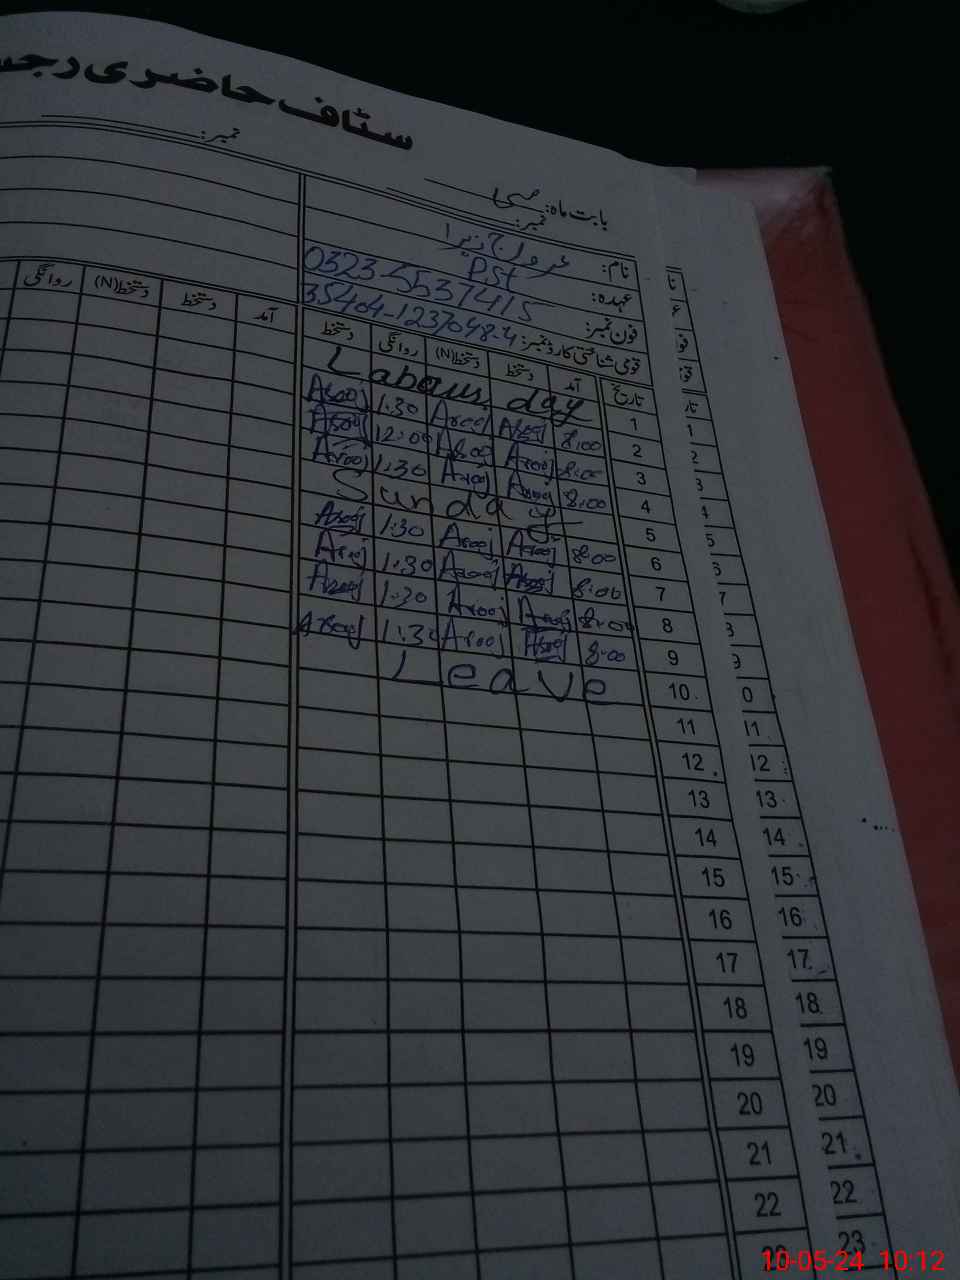 سٹاف حاضری رجس
نمبر:
بابت ماہ: مئی
نمبر:
نام: عروج زہرا
عہدہ: PST
فون نمبر: 0323-5537415
قومی شناختی کارڈ نمبر: 35404-1237048-4
تاریخ آمد دستخط دستخط(N) روانگی دستخط آمد دستخط دستخط(N) روانگی
1 Labour day
2 8:00 Arooj Arooj 1:30 Arooj
3 8:00 Arooj Arooj 12:00 Arooj
4 8:00 Arooj Arooj 1:30 Arooj
5 Sunday
6 8:00 Arooj Arooj 1:30 Arooj
7 8:00 Arooj Arooj 1:30 Arooj
8 8:00 Arooj Arooj 1:30 Arooj
9 8:00 Arooj Arooj 1:30 Arooj
10 Leave
11
12
13
14
15
16
17
18
19
20
21
22
1
2
3
4
5
6
7
8
9
10
11
12
13
14
15
16
17
18
19
20
21
22
23
10-05-24 10:12